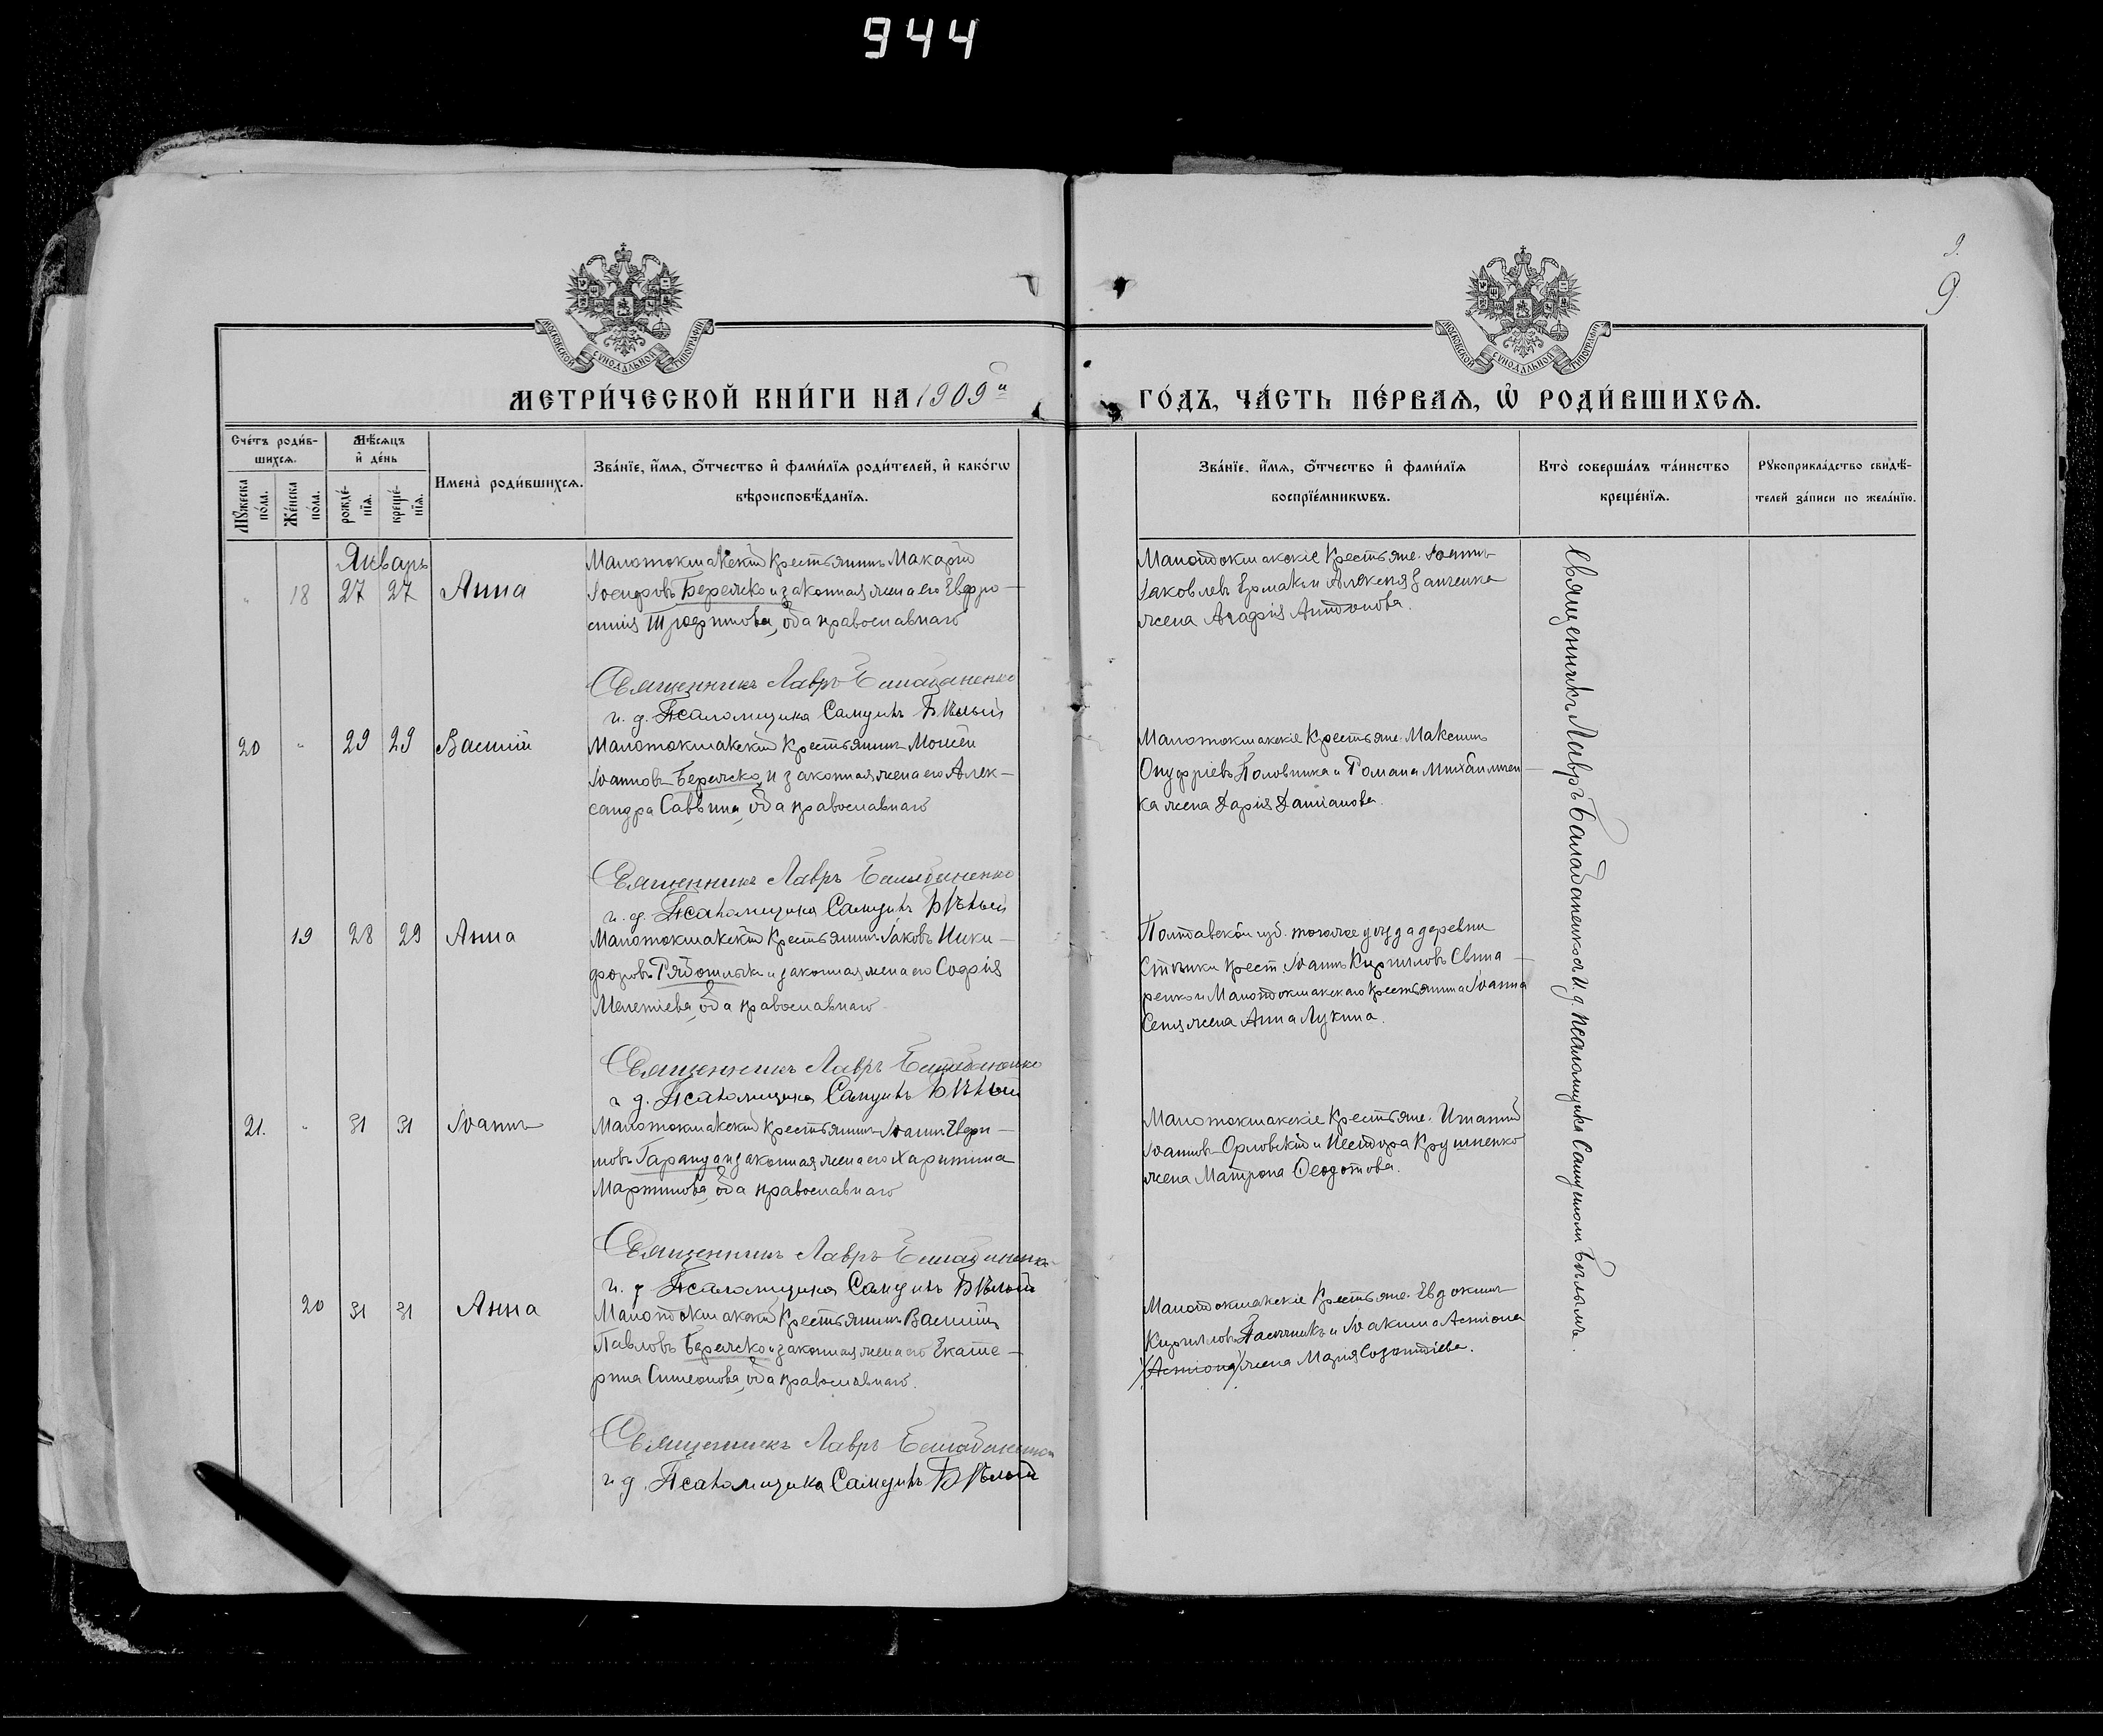 944
9.
9
МОСКОВСКОЙ СѴНОДАЛЬНОЙ ТИПОГРАФІИ
МОСКОВСКОЙ СѴНОДАЛЬНОЙ ТИПОГРАФІИ
МЕТРИ́ЧЕСКОЙ КНИ́ГИ НА 1909й ГО́ДЪ, ЧА́СТЬ ПЕ́РВАЯ, Ѡ РОДИ́ВШИХСЯ.
Сче́тъ роди́вшихся.
Мѣ́сяцъ и де́нь
Имена̀ роди́вшихся.
Зва́нїе, и́мя, о́тчество и фами́лїя роди́телей, и како́гѡ
вѣроисповѣ́данїя.
Зва́нїе, и́мя, о́тчество и фами́лїя
воспрїе́мникѡвъ.
Кто̀ соверша́лъ та́инство
креще́нїя.
Рукоприкла́дство свидѣ́-
телей за́писи по жела́нїю.
Му́жеска по́ла.
Же́нска по́ла.
рожде́-нїя.
креще́-нїя.
Январь
18 27 27 Анна
Малотокмакскій крестьянинъ Макарій
Іосифовъ Бережко и законная жена его Евфро-
синія Трофимова, оба православнаго
Малотокмакскіе крестьяне: Іоаннъ
Іаковлевъ Ермакъ и Алексея Ганченка
жена Агафія Антонова.
Священникъ Лавръ Балабаненко
и. д. Псаломщика Самуилъ Бѣлый
20 " 29 29 Василій
Малотокмакскій крестьянинъ Моисей
Іоанновъ Бережко и законная жена его Алек-
сандра Саввина, оба православнаго
Малотокмакскіе крестьяне: Максимъ
Онуфріевъ Половинка и Романа Михайличен-
ка жена Дарія Даміанова.
Священникъ Лавръ Балабаненко
и. д. Псаломщика Самуилъ Бѣлый
19 28 29 Анна
Малотокмакскій крестьянинъ Іаковъ Ники-
форовъ Рябошлыкъ и законная жена его Софія
Мелетіева, оба православнаго
Полтавской губ. того же уѣзда деревни
крест. Іоаннъ Кирилловъ Свина-
ренко и Малотокмакскаго крестьянина Іоанна
жена Анна Лукина.
Священникъ Лавръ Балабаненко
и д. Псаломщика Самуилъ Бѣлый
21. " 31 31 Іоаннъ
Малотокмакскій крестьянинъ Іоаннъ
Гаранда и законная жена его Харитина
Мартинова, оба православнаго
Малотокмакскіе крестьяне: Игнатій
Іоанновъ Орловскій и Нестора Крушненко
жена Матрона Ѳеодотова.
Священникъ Лавръ Балабаненко
и. д Псаломщика Самуилъ Бѣлый
20 31 31 Анна
Малотокмакскій крестьянинъ Василій
Павловъ Бережко и законная жена его Екате-
рина Симеонова, оба православнаго.
Малотокмакскіе крестьяне: Евдокимъ
Кирилловъ Пасѣчникъ и Іоакима
жена Марія Созонтіева.
Священникъ Лавръ Балабаненко
и д. Псаломщика Самуилъ Бѣлый
Священникъ Лавръ Балабаненко съ и. д псаломщика Самуиломъ Бѣлымъ.